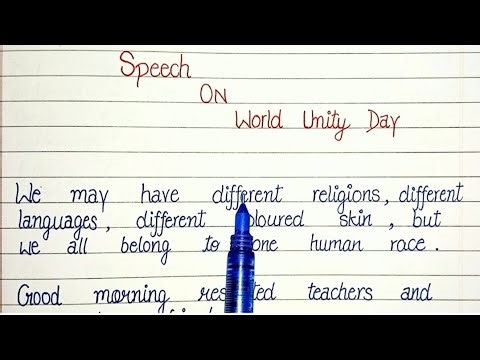 Speech
ON
World Unity Day
We may have different religions, different
languages, different oloured skin, but
we all belong to one human race.
Good morning res ted teachers and